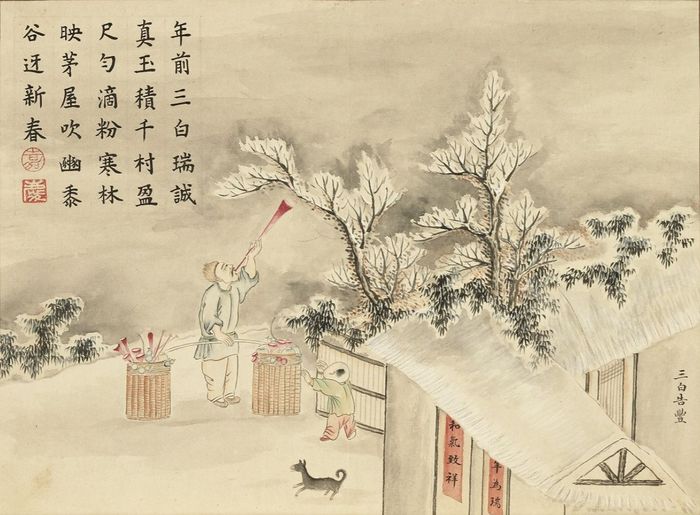 年前三白瑞誠
真玉積千村盈
尺勻滴粉寒林
映茅屋吹豳黍
谷迓新春
嘉
慶
三白告豐
和氣致祥
年為瑞